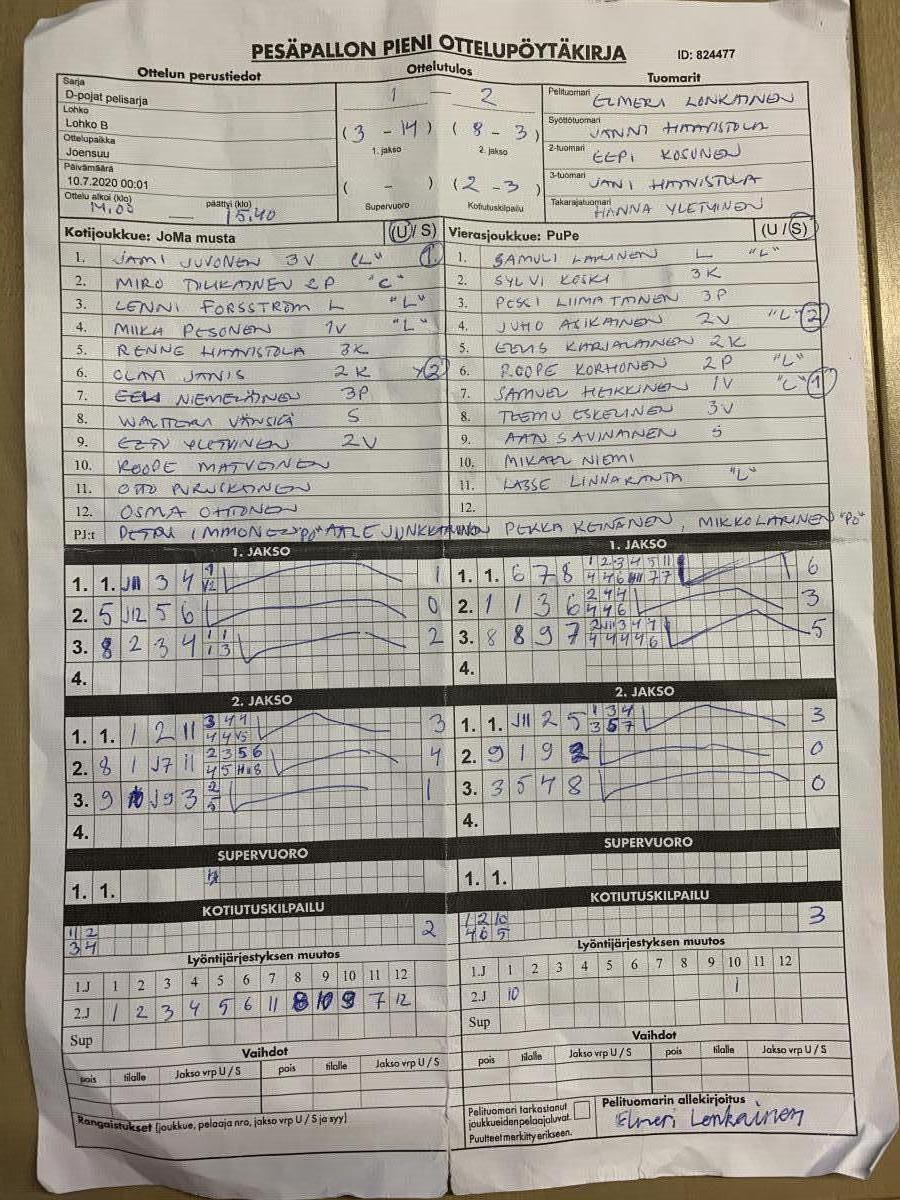 PESÄPALLON PIENI OTTELUPÖYTÄKIRJA ID: 824477
Ottelun perustiedot Ottelutulos Tuomarit
Sarja
D-pojat pelisarja
Lohko
Lohko B
Ottelupaikka
Joensuu
Päivämäärä
10.7.2020 00:01
Ottelu alkoi (klo) päättyi (klo)
14.00 15.40
1 — 2
(3 - 14) (8 - 3)
1. jakso 2. jakso
( - ) (2 - 3)
Supervuoro Kotiutuskilpailu
Pelituomari ELMERI LONKAINEN
Syöttötuomari JANNI HAAVISTOLA
2-tuomari EEPI KOSUNEN
3-tuomari JANI HAAVISTOLA
Takarajatuomari HANNA YLETYINEN
Kotijoukkue: JoMa musta (U / S)
1. JAMI JUVONEN 3V "L" 1
2. MIRO 2P "L"
3. LENNI FORSSTRÖM L "L"
4. MIIKA PESONEN 1V "L"
5. RENNE HAAVISTOLA 3K
6. OLAVI JANIS 2K
7. EELI NIEMELÄINEN 3P
8. WALTTERI VÄNSKÄ S
9. YLETYINEN 2V
10. ROOPE MATVEINEN
11. OTTO PURUSKAINEN
12. OSMA OTTONEN
PJ:t PETRI IMMONEN "PJ" AALE JUNKKARINEN
Vierasjoukkue: PuPe (U / S)
1. SAMULI LAKINEN L "L"
2. SYLVI KOSKI 3K
3. PESSI LIIMATAINEN 3P
4. JUHO ASIKAINEN 2V "L" 2
5. EELIS KARJALAINEN 2K
6. ROOPE KORHONEN 2P "L"
7. SAMUEL HEIKKINEN 1V "L" 1
8. TEEMU ESKELINEN 3V
9. AATU SAVINAINEN S
10. MIKAEL NIEMI
11. LASSE LINNARANTA "L"
12.
PEKKA KEINÄNEN, MIKKO LARINEN "PJ"
1. JAKSO
1. 1. J11 3 4 1
2. 5 J12 5 6 0
3. 8 2 3 4 1 1 1 3 2
4.
1. JAKSO
1. 1. 6 7 8 6
2. 1 1 3 6 2 4 4 4 4 6 3
3. 8 8 9 7 5
4.
2. JAKSO
1. 1. 1 2 11 3 4 4 3
2. 8 1 J7 11 2 3 5 6 4
3. 9 10 J9 3 2 5 1
4.
2. JAKSO
1. 1. J11 2 5 1 3 4 3 5 7 3
2. 9 1 9 2 0
3. 3 5 4 8 0
4.
SUPERVUORO
1. 1.
SUPERVUORO
1. 1.
KOTIUTUSKILPAILU
11 2
3 4 2
KOTIUTUSKILPAILU
1 2 10
4 6 5 3
Lyöntijärjestyksen muutos
1.J 1 2 3 4 5 6 7 8 9 10 11 12
2.J 1 2 3 4 5 6 11 8 10 9 7 12
Sup
Lyöntijärjestyksen muutos
1.J 1 2 3 4 5 6 7 8 9 10 11 12
2.J 10 1
Sup
Vaihdot
pois tilalle Jakso vrp U / S pois tilalle Jakso vrp U / S
Vaihdot
pois tilalle Jakso vrp U / S pois tilalle Jakso vrp U / S
Rangaistukset (joukkue, pelaaja nro, jakso vrp U / S ja syy)
Pelituomari tarkastanut
joukkueiden pelaajaluvat.
Puutteet merkitty erikseen.
Pelituomarin allekirjoitus
Elmeri Lonkainen